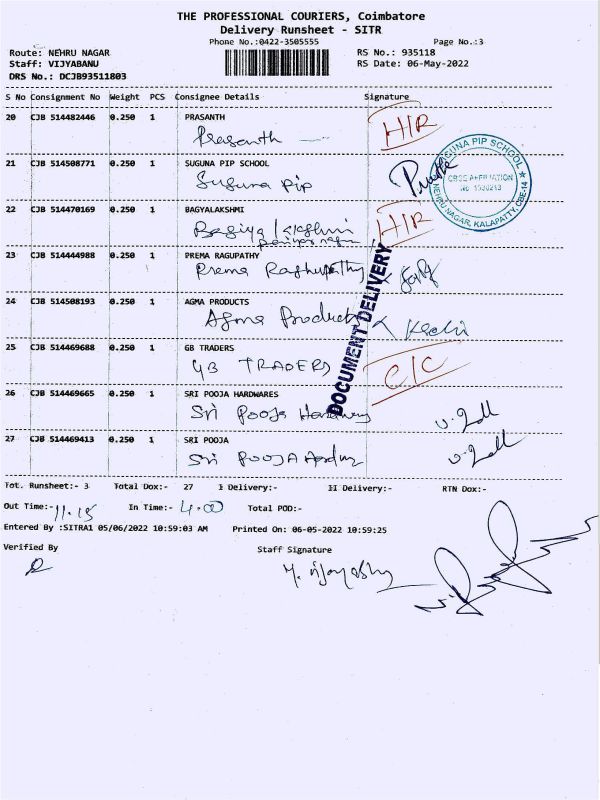 THE PROFESSIONAL COURIERS, Coimbatore
Delivery Runsheet - SITR
Phone No.:0422-3505555 Page No.:3
Route: NEHRU NAGAR RS No.: 935118
Staff: VIJYABANU RS Date: 06-May-2022
DRS No.: DCJB93511803
S No Consignment No Weight PCS Consignee Details Signature
20 CJB 514482446 0.250 1 PRASANTH
Prasanth H/R
21 CJB 514508771 0.250 1 SUGUNA PIP SCHOOL
Suguna pip
SUGUNA PIP SCHOOL
CBSE AFFILIATION
No 1930213
NEHRU NAGAR, KALAPATTY, CBE-14
22 CJB 514470169 0.250 1 BAGYALAKSHMI
Bagiya lakshmi H/R
23 CJB 514444988 0.250 1 PREMA RAGUPATHY
Prema Raghupathy
24 CJB 514508193 0.250 1 AGMA PRODUCTS
Agma Products
DOCUMENT DELIVERY
25 CJB 514469688 0.250 1 GB TRADERS
GB TRADERS C/C
26 CJB 514469665 0.250 1 SRI POOJA HARDWARES
Sri Pooja Hardwares
27 CJB 514469413 0.250 1 SRI POOJA
Sri POOJA
Tot. Runsheet:- 3 Total Dox:- 27 I Delivery:- II Delivery:- RTN Dox:-
Out Time:- 11.15 In Time:- 4.00 Total POD:-
Entered By :SITRA1 05/06/2022 10:59:03 AM Printed On: 06-05-2022 10:59:25
Verified By Staff Signature